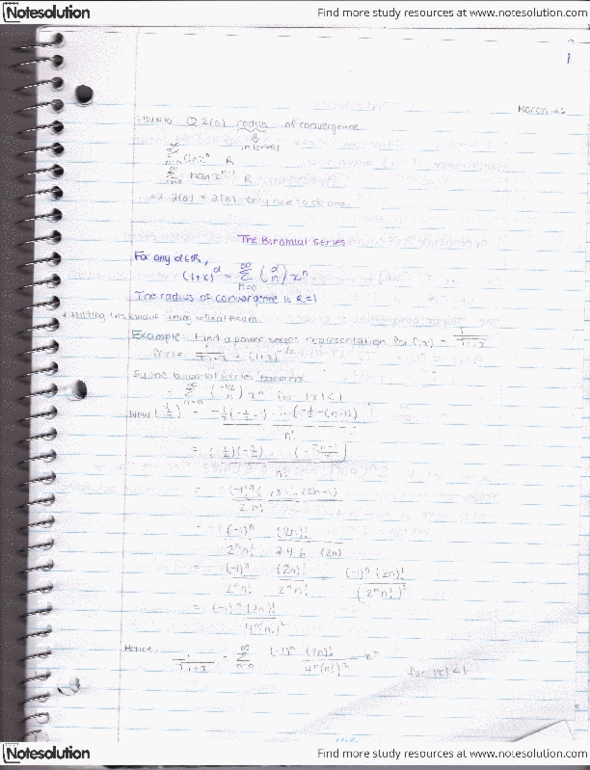 Notesolution
Find more study resources at www.notesolution.com
1
Q 2(a) radius of convergence
interval
R
R
The Binomial Series
For any α∈ℝ,
(1+x)^α = ∞ Σ n=0 (α n) x^n
The radius of convergence is R=1
Example: Find a power series representation for f(x) = 1/√1+x
f(x) = 1/√1+x = (1+x)^-1/2
binomial series theorem
= ∞ Σ n=0 (-1/2 n) x^n for |x|<1
Now
n!
= (-1/2)(-3/2) ... (-2n-1/2)
n!
= (-1)^n (1·3·5 ... (2n-1))
2^n n!
= (-1)^n (2n)!
2^n n! 2 4 6 (2n)
= (-1)^n (2n)! = (-1)^n (2n)!
2^n n! 2^n n! (2^n n!)^2
= (-1)^n (2n)!
4^n (n!)^2
Hence,
1/√1+x = ∞ Σ n=0 (-1)^n (2n)! / 4^n (n!)^2 x^n
for |x|<1
Notesolution
Find more study resources at www.notesolution.com